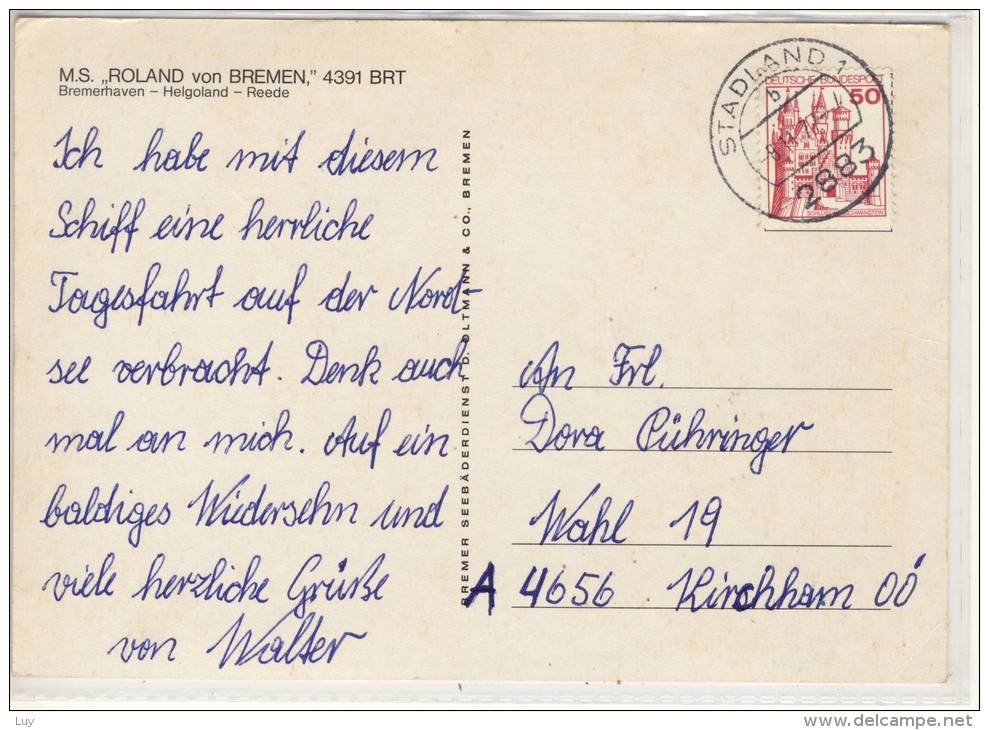 M.S. „ROLAND von BREMEN,” 4391 BRT
Bremerhaven – Helgoland – Reede
Ich habe mit diesem
Schiff eine herrliche
Tagesfahrt auf der Nord-
see verbracht. Denk auch
mal an mich. Auf ein
baldiges Wiedersehn und
viele herzliche Grüße
von Walter
BREMER SEEBÄDERDIENST D. OLTMANN & CO., BREMEN
STADLAND 1
b
2883
DEUTSCHE BUNDESPOST
50
An Frl.
Dora Pühringer
Wahl 19
A 4656 Kirchham OÖ
Luy
delcampe.net